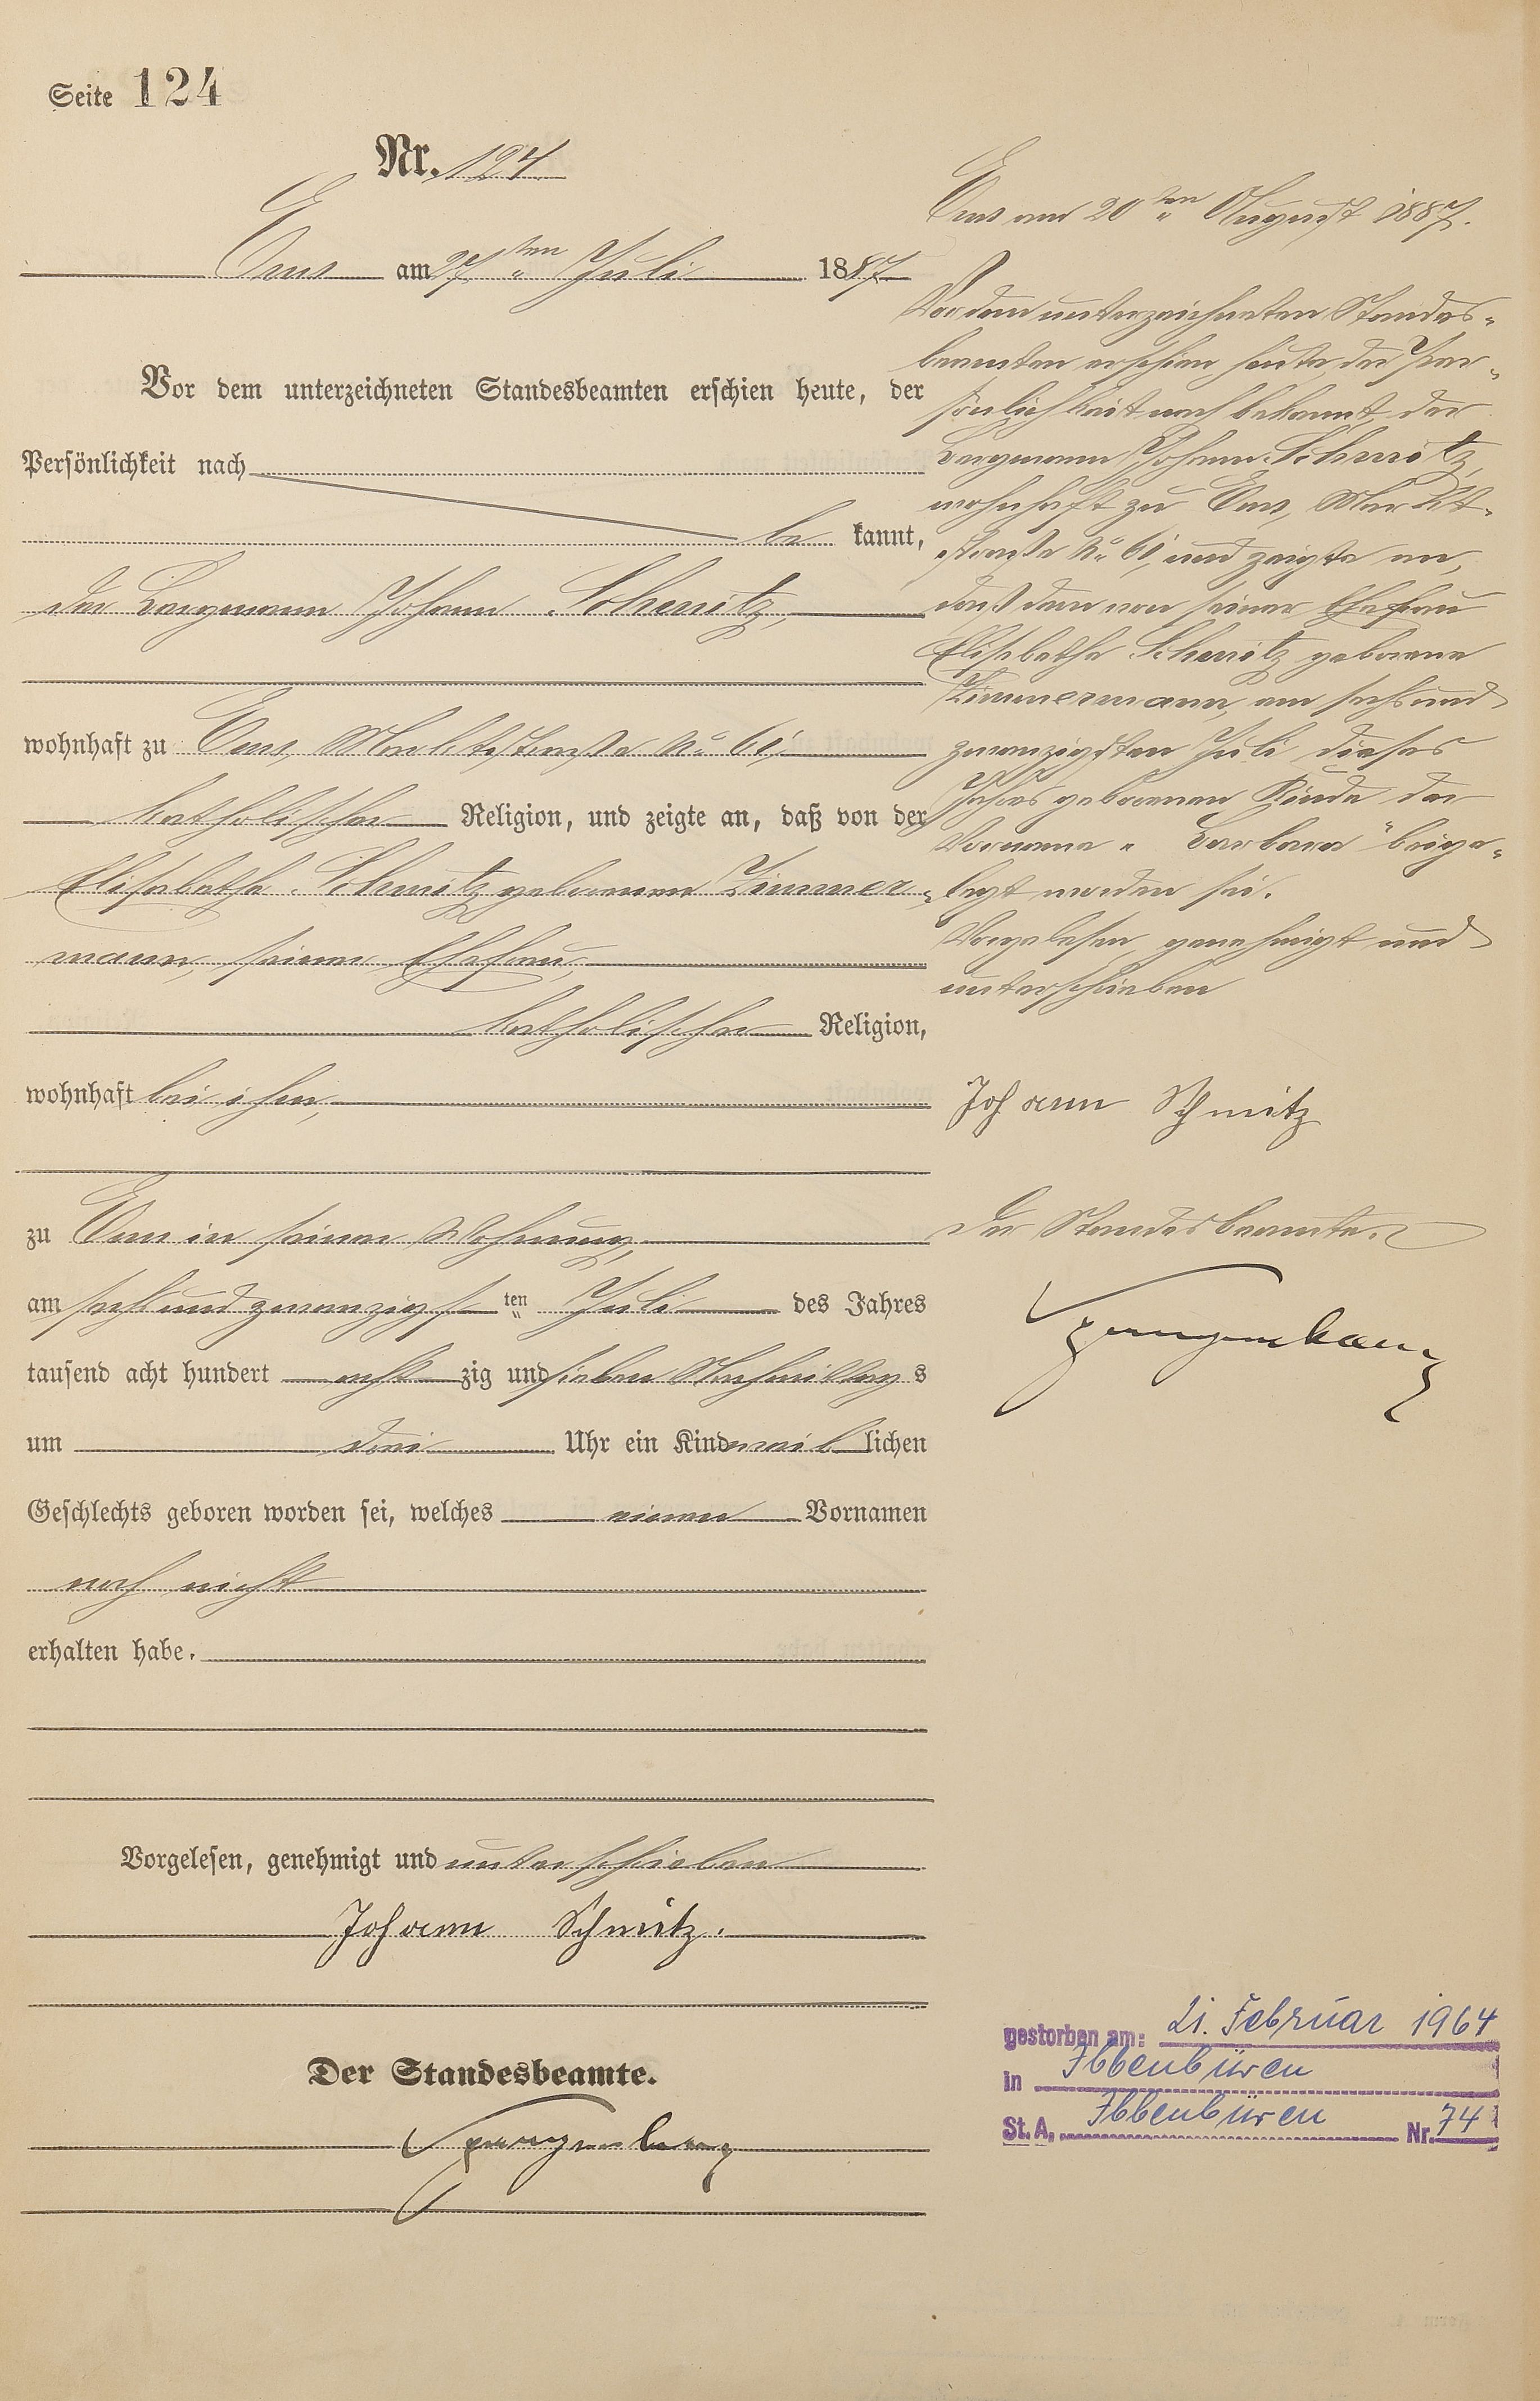 Seite 124
Nr. 124.
Ems am 27ten Juli 1887
Vor dem unterzeichneten Standesbeamten erschien heute, der
Persönlichkeit nach
be kannt,
der Bergmann Johann Schmitz,
wohnhaft zu Ems, Marktstraße No 61,
katholischer Religion, und zeigte an, daß von der
Elisabetha Schmitz geborenen Zimmer-
mann, seiner Ehefrau,
katholischer Religion,
wohnhaft bei ihm,
zu Ems in seiner Wohnung,
am sechsundzwanzigsten Juli des Jahres
tausend acht hundert acht zig und sieben Nachmittags
um drei Uhr ein Kind weiblichen
Geschlechts geboren worden sei, welches einen Vornamen
noch nicht
erhalten habe.
Vorgelesen, genehmigt und unterschrieben
Johann Schmitz.
Der Standesbeamte.
Spangenberg
Ems am 20ten August 1887.
Vor dem unterzeichneten Standes-
beamten erschien heute, der Per-
sönlichkeit nach bekannt, der
Bergmann Johann Schmitz,
wohnhaft zu Ems, Markt-
straße No 61, und zeigte an,
daß dem von seiner Ehefrau
Elisabetha Schmitz geborene
Zimmermann, am sechsund
zwanzigsten Juli dieses
Jahres geborenen Kinde der
Vorname "Barbara" beige-
legt worden sei.
Vorgelesen, genehmigt und
unterschrieben
Johann Schmitz
Der Standesbeamte.
Spangenberg
gestorben am: 21. Februar 1964
in Ibbenbüren
St. A. Ibbenbüren Nr. 74